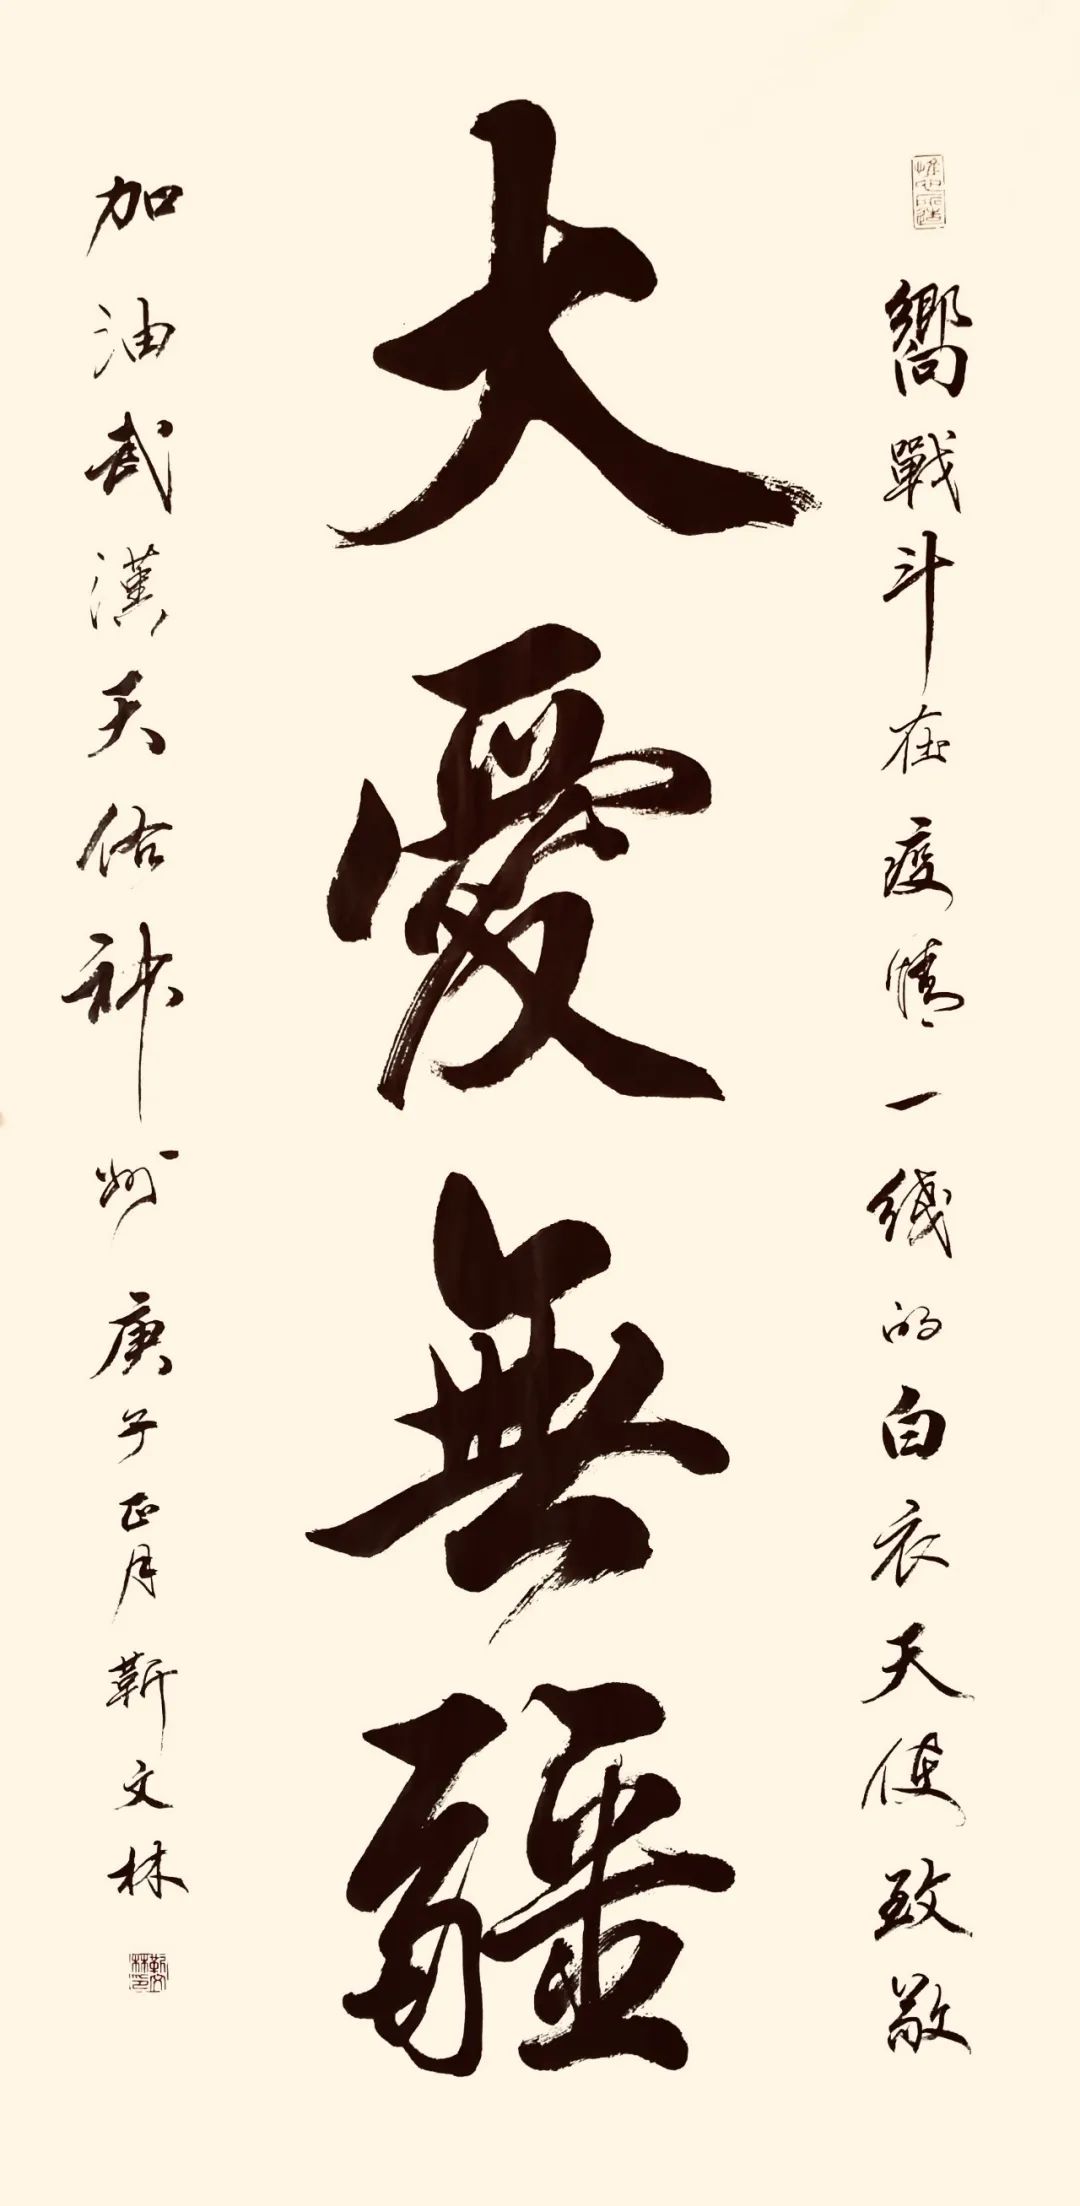 嚮戰斗在疫情一线的白衣天使致敬
大愛無疆
加油武漢天佑神州 庚子正月 靳文林
靳文林印